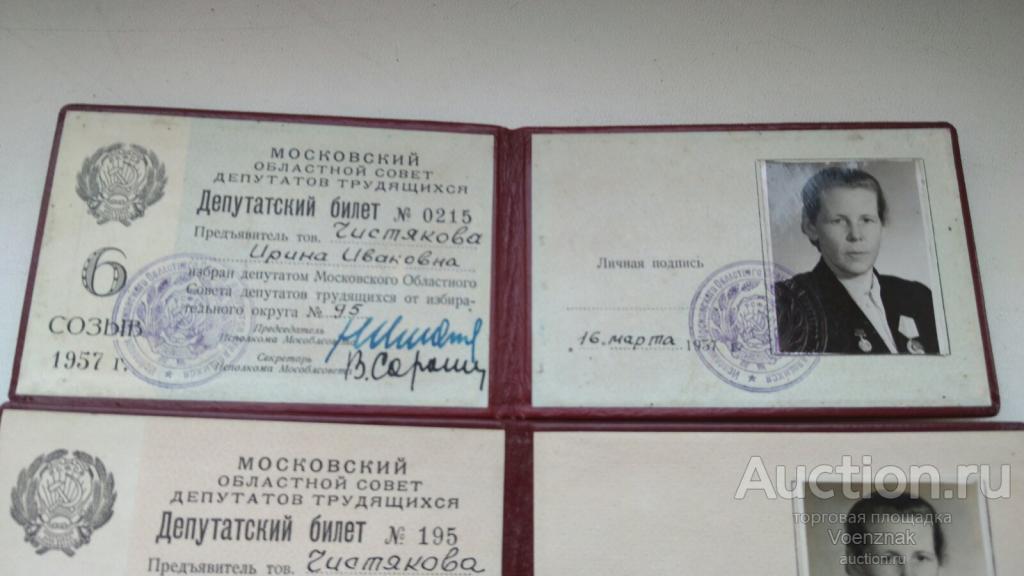 МОСКОВСКИЙ
ОБЛАСТНОЙ СОВЕТ
ДЕПУТАТОВ ТРУДЯЩИХСЯ
Депутатский билет № 0215
Предъявитель тов. Чистякова
Ирина Ивановна
избран депутатом Московского Областного
Совета депутатов трудящихся от избира-
тельного округа № 95
6
СОЗЫВ
1957 г.
Председатель
Исполкома Мособлсовета
Секретарь
Исполкома Мособлсовета
Личная подпись
16 марта 1957 г.
МОСКОВСКИЙ
ОБЛАСТНОЙ СОВЕТ
ДЕПУТАТОВ ТРУДЯЩИХСЯ
Депутатский билет № 195
Предъявитель тов. Чистякова
Auction.ru
торговая площадка
Voenznak
auction.ru